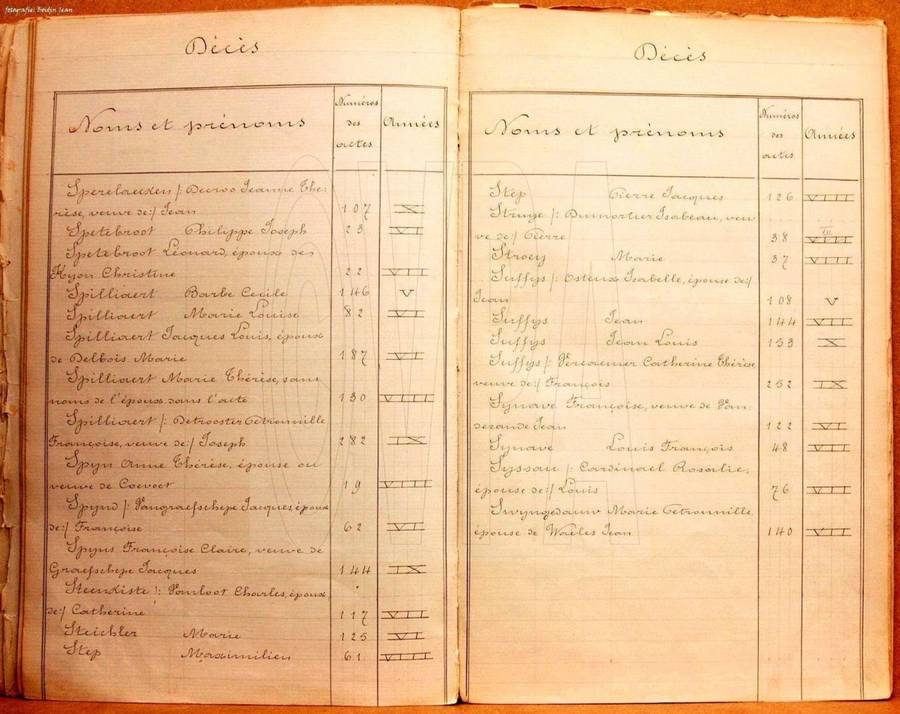 fotografie: Beidjn Jean
Décès
Noms et prénoms
Numéros
des
actes
Années
Sperelaecken /: Decroo Jeanne Thé-
rèse, veuve de:/ Jean 107 X
Spetebroot Philippe Joseph 23 VI
Spetebroot Léonard, époux des
Kyon Christine 22 VII
Spilliaert Barbe Cecile 146 V
Spilliaert Marie Louise 82 VI
Spilliaert Jacques Louis, époux
de Delbois Marie 187 VI
Spilliaert Marie Thérèse, sans
noms de l'époux dans l'acte 130 VIII
Spilliaert /: Detrooster Petronnille
Françoise, veuve de:/ Joseph 282 IX
Spyn Anne Thérèse, épouse ou
veuve de Coevoet 19 VIII
Spyns /: Vangraefschepe Jacques époux
de:/ Françoise 62 VII
Spyns Françoise Claire, veuve de
Graefschepe Jacques 144 IX
Steenkiste /: Vanloot Charles, époux
de:/ Catherine 117 VII
Steichler Marie 125 VI
Step Maximilien 61 VIII
Décès
Noms et prénoms
Numéros
des
actes
Années
Step Pierre Jacques 126 VIII
Struye /: Dumortier Isabeau, veu
ve de:/ Pierre 38 VIII
Stroey Marie 37 VIII
Suffys /: Osteux Isabelle, épouse de:/
Jean 108 V
Suffys Jean 144 VII
Suffys Jean Louis 153 X
Suffys /: Vercaemer Catherine Thérèse
veuve de:/ François 252 IX
Synave Françoise, veuve de Van-
dezande Jean 122 VI
Synave Louis François 48 VII
Syssau /: Cardinael Rosalie,
épouse de:/ Louis 76 VII
Swyngedauw Marie Petronnille
épouse de Waeles Jean 140 VII